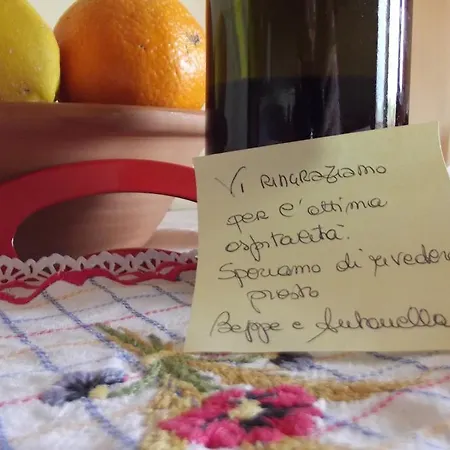 Vi RINGRAZIAMO
per l'ottima
ospitalità.
Speriamo di rivederci
presto
Beppe e Antonella